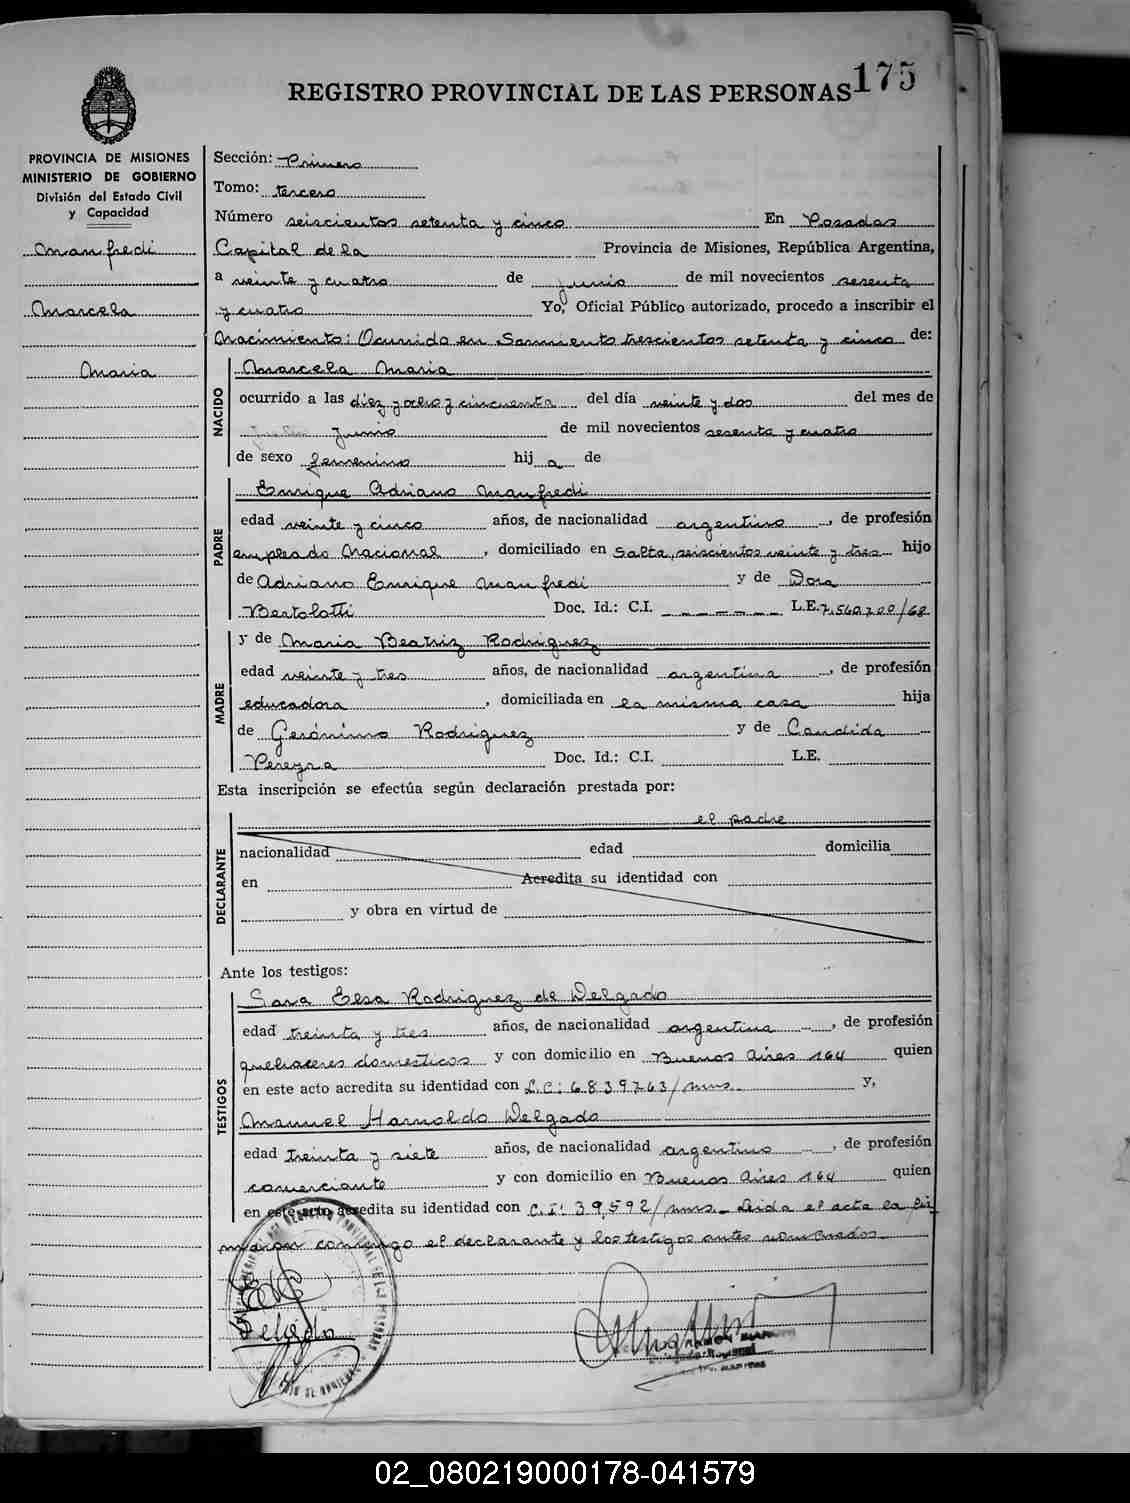 175
REGISTRO PROVINCIAL DE LAS PERSONAS
PROVINCIA DE MISIONES
MINISTERIO DE GOBIERNO
División del Estado Civil
y Capacidad
Manfredi
Marcela
Maria
Sección: Primero
Tomo: tercero
Número seiscientos setenta y cinco En Posadas
Capital de la Provincia de Misiones, República Argentina,
a veinte y cuatro de junio de mil novecientos sesenta
y cuatro Yo, Oficial Público autorizado, procedo a inscribir el
Nacimiento: Ocurrido en Sarmiento trescientos setenta y cinco de:
NACIDO
Marcela Maria
ocurrido a las diez y ocho y cincuenta del día veinte y dos del mes de
Junio de mil novecientos sesenta y cuatro
de sexo femenino hij a de
PADRE
Enrique Adriano Manfredi
edad veinte y cinco años, de nacionalidad argentino, de profesión
empleado Nacional, domiciliado en Salta, seiscientos veinte y tres hijo
de Adriano Enrique Manfredi y de Dora
Bertolotti Doc. Id.: C.I. - - - - - - - L.E. 7.560.700/68
MADRE
y de Maria Beatriz Rodriguez
edad veinte y tres años, de nacionalidad argentina, de profesión
educadora, domiciliada en la misma casa hija
de Gerónimo Rodriguez y de Candida
Pereyra Doc. Id.: C.I. L.E.
Esta inscripción se efectúa según declaración prestada por:
DECLARANTE
el padre
nacionalidad edad domicilia
en Acredita su identidad con
y obra en virtud de
Ante los testigos:
TESTIGOS
Sara Elsa Rodriguez de Delgado
edad treinta y tres años, de nacionalidad argentina, de profesión
quehaceres domesticos y con domicilio en Buenos Aires 164 quien
en este acto acredita su identidad con L.C: 6.839.763/mns. y,
Manuel Harnoldo Delgado
edad treinta y siete años, de nacionalidad argentino, de profesión
comerciante y con domicilio en Buenos Aires 164 quien
en este acto acredita su identidad con C.I: 39,592/mns.- Leida el acta la fir
maron conmigo el declarante y los testigos antes nombrados.
Delgado
02_080219000178-041579